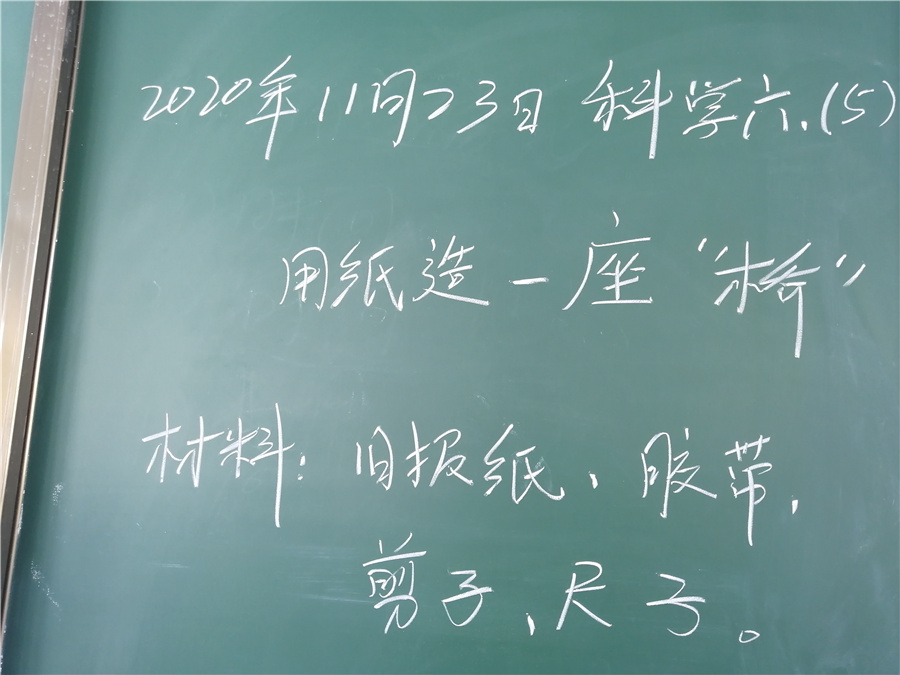 2020年11月23日 科学六.(5)
用纸造一座“桥”
材料：旧报纸、胶带、
剪子、尺子。